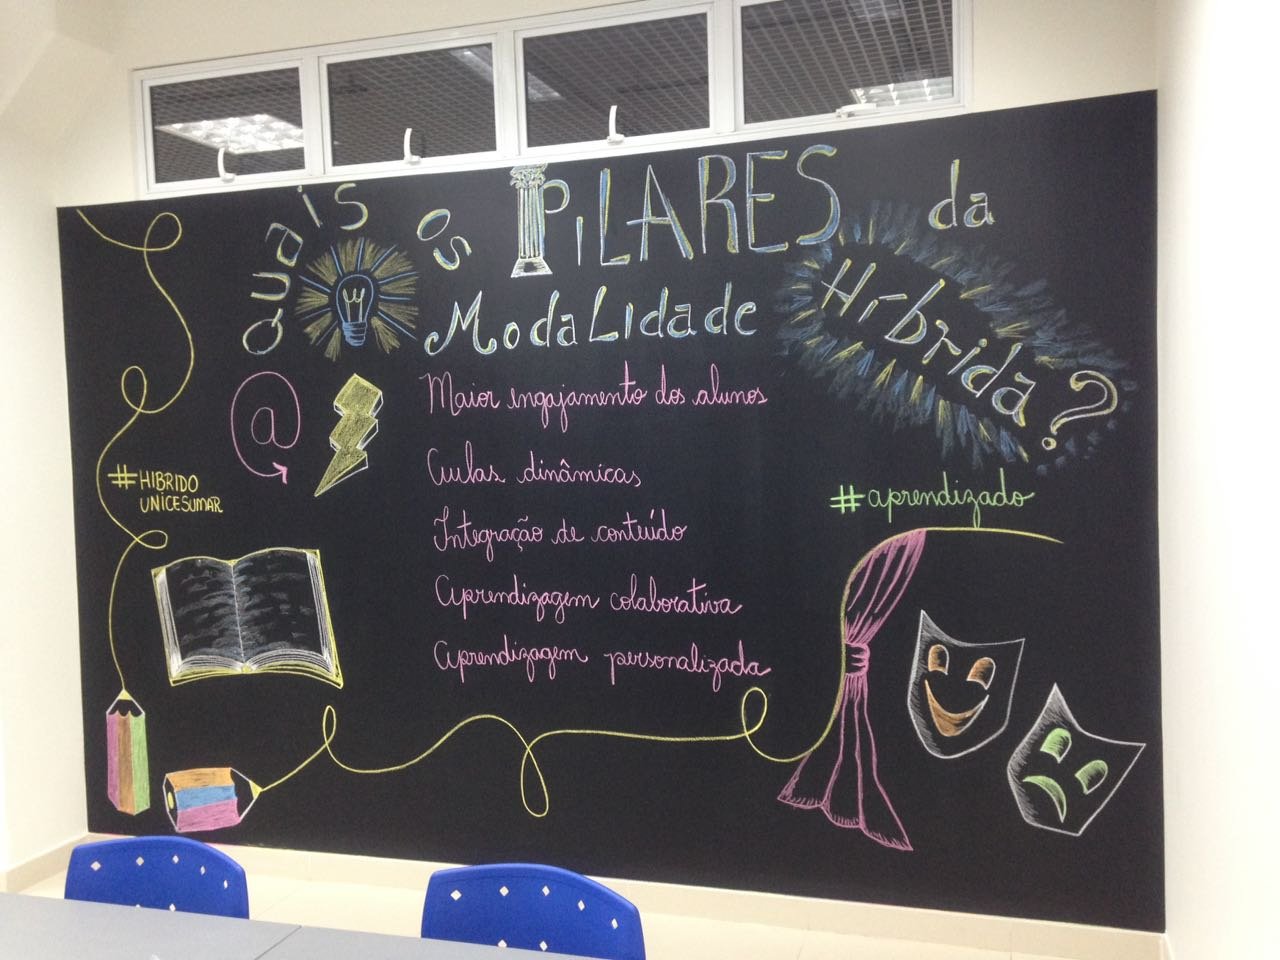 QUAIS OS PILARES da
ModaLidade Híbrida?
@
Maior engajamento dos alunos
Aulas dinâmicas
Integração de conteúdo
Aprendizagem colaborativa
Aprendizagem personalizada
#HIBRIDO
UNICESUMAR
#aprendizado